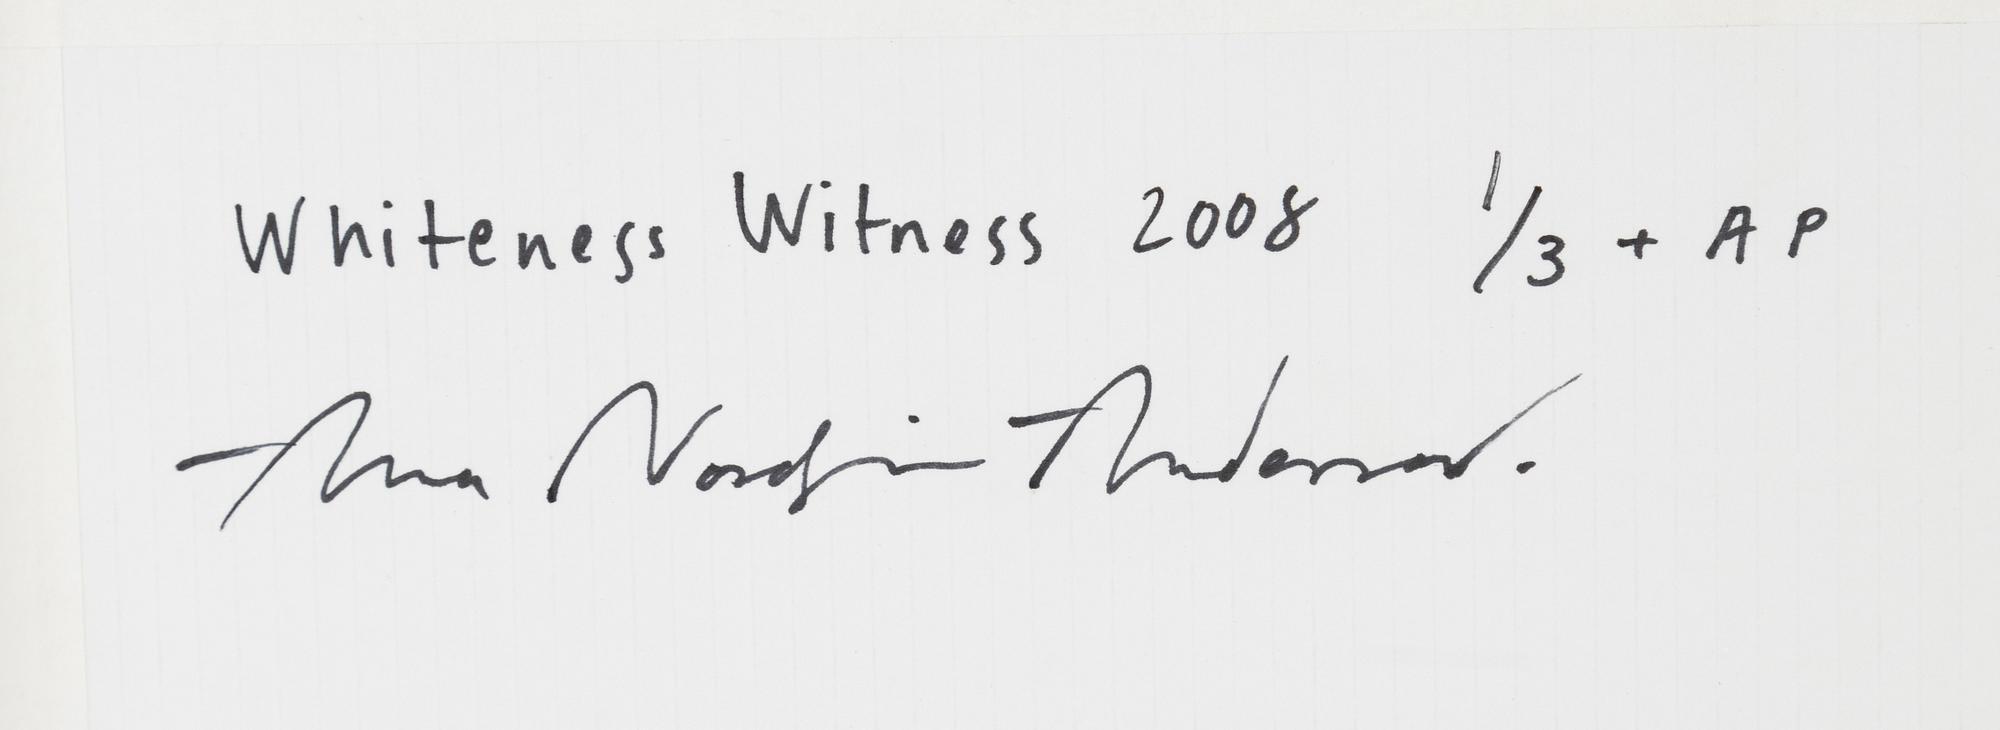 Whiteness Witness 2008 1/3 + AP
Nordin Andersson.